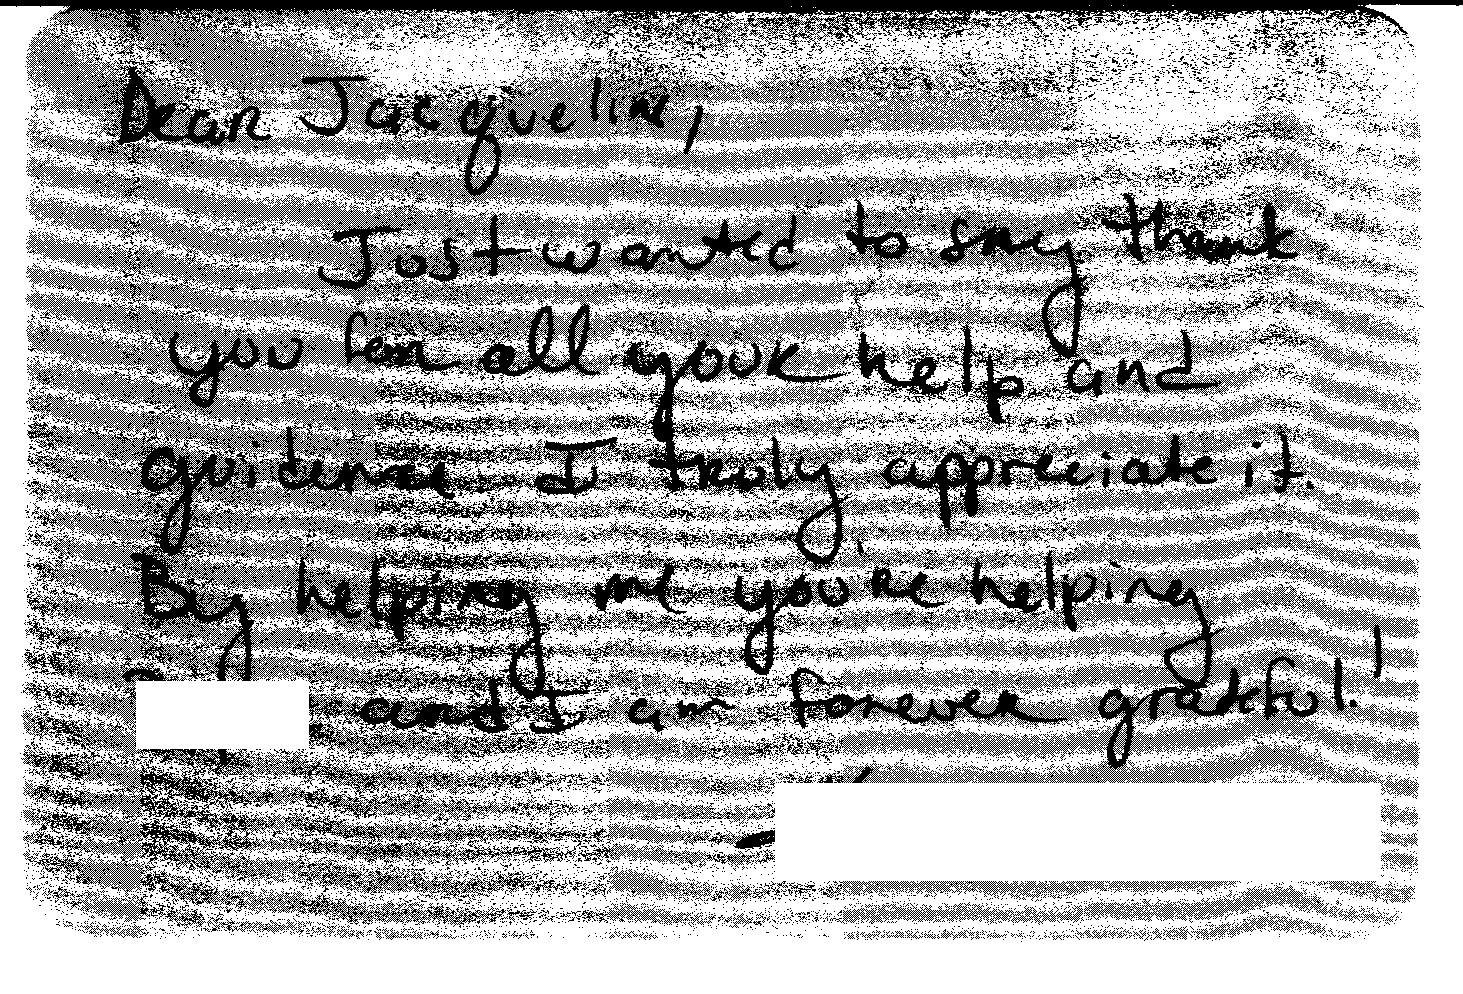 Dear Jacqueline,
Just wanted to say thank
you for all your help and
guidance I truly appreciate it.
By helping me you're helping
and I am forever grateful!